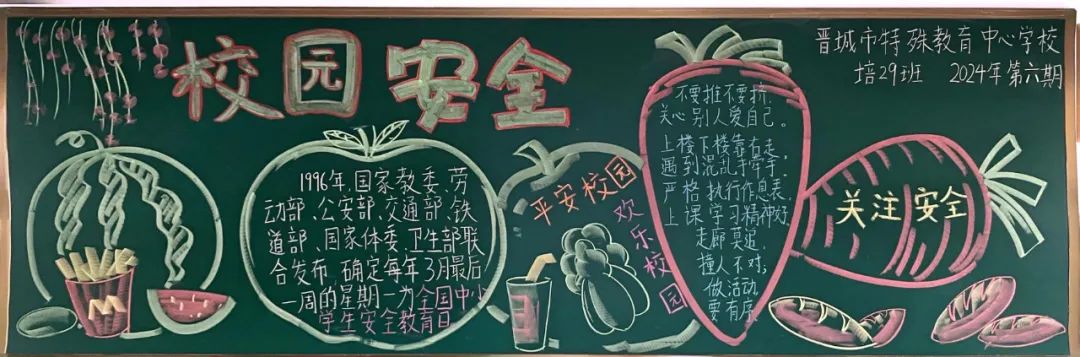 校园安全
晋城市特殊教育中心学校
培29班 2024年第六期
1996年,国家教委、劳
动部、公安部、交通部、铁
道部、国家体委、卫生部联
合发布,确定每年3月最后
一周的星期一为全国中小
学生安全教育日
M
平安校园
欢乐校园
不要推不要挤,
关心别人爱自己。
上楼下楼靠右走,
遇到混乱手牵手,
严格执行作息表,
上课学习精神好,
走廊莫追,
撞人不对,
做活动
要有序
关注安全